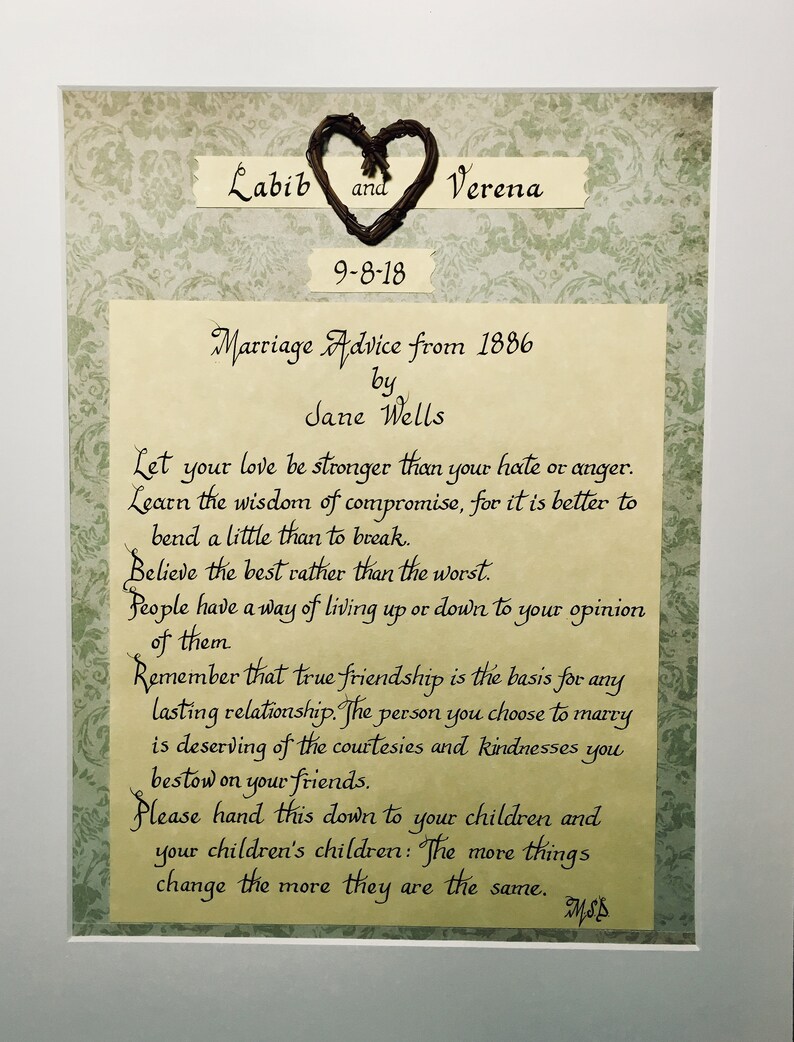 Labib and Verena
9-8-18
Marriage Advice from 1886
by
Jane Wells
Let your love be stronger than your hate or anger.
Learn the wisdom of compromise, for it is better to
bend a little than to break.
Believe the best rather than the worst.
People have a way of living up or down to your opinion
of them.
Remember that true friendship is the basis for any
lasting relationship. The person you choose to marry
is deserving of the courtesies and kindnesses you
bestow on your friends.
Please hand this down to your children and
your children's children: The more things
change the more they are the same.
MSD